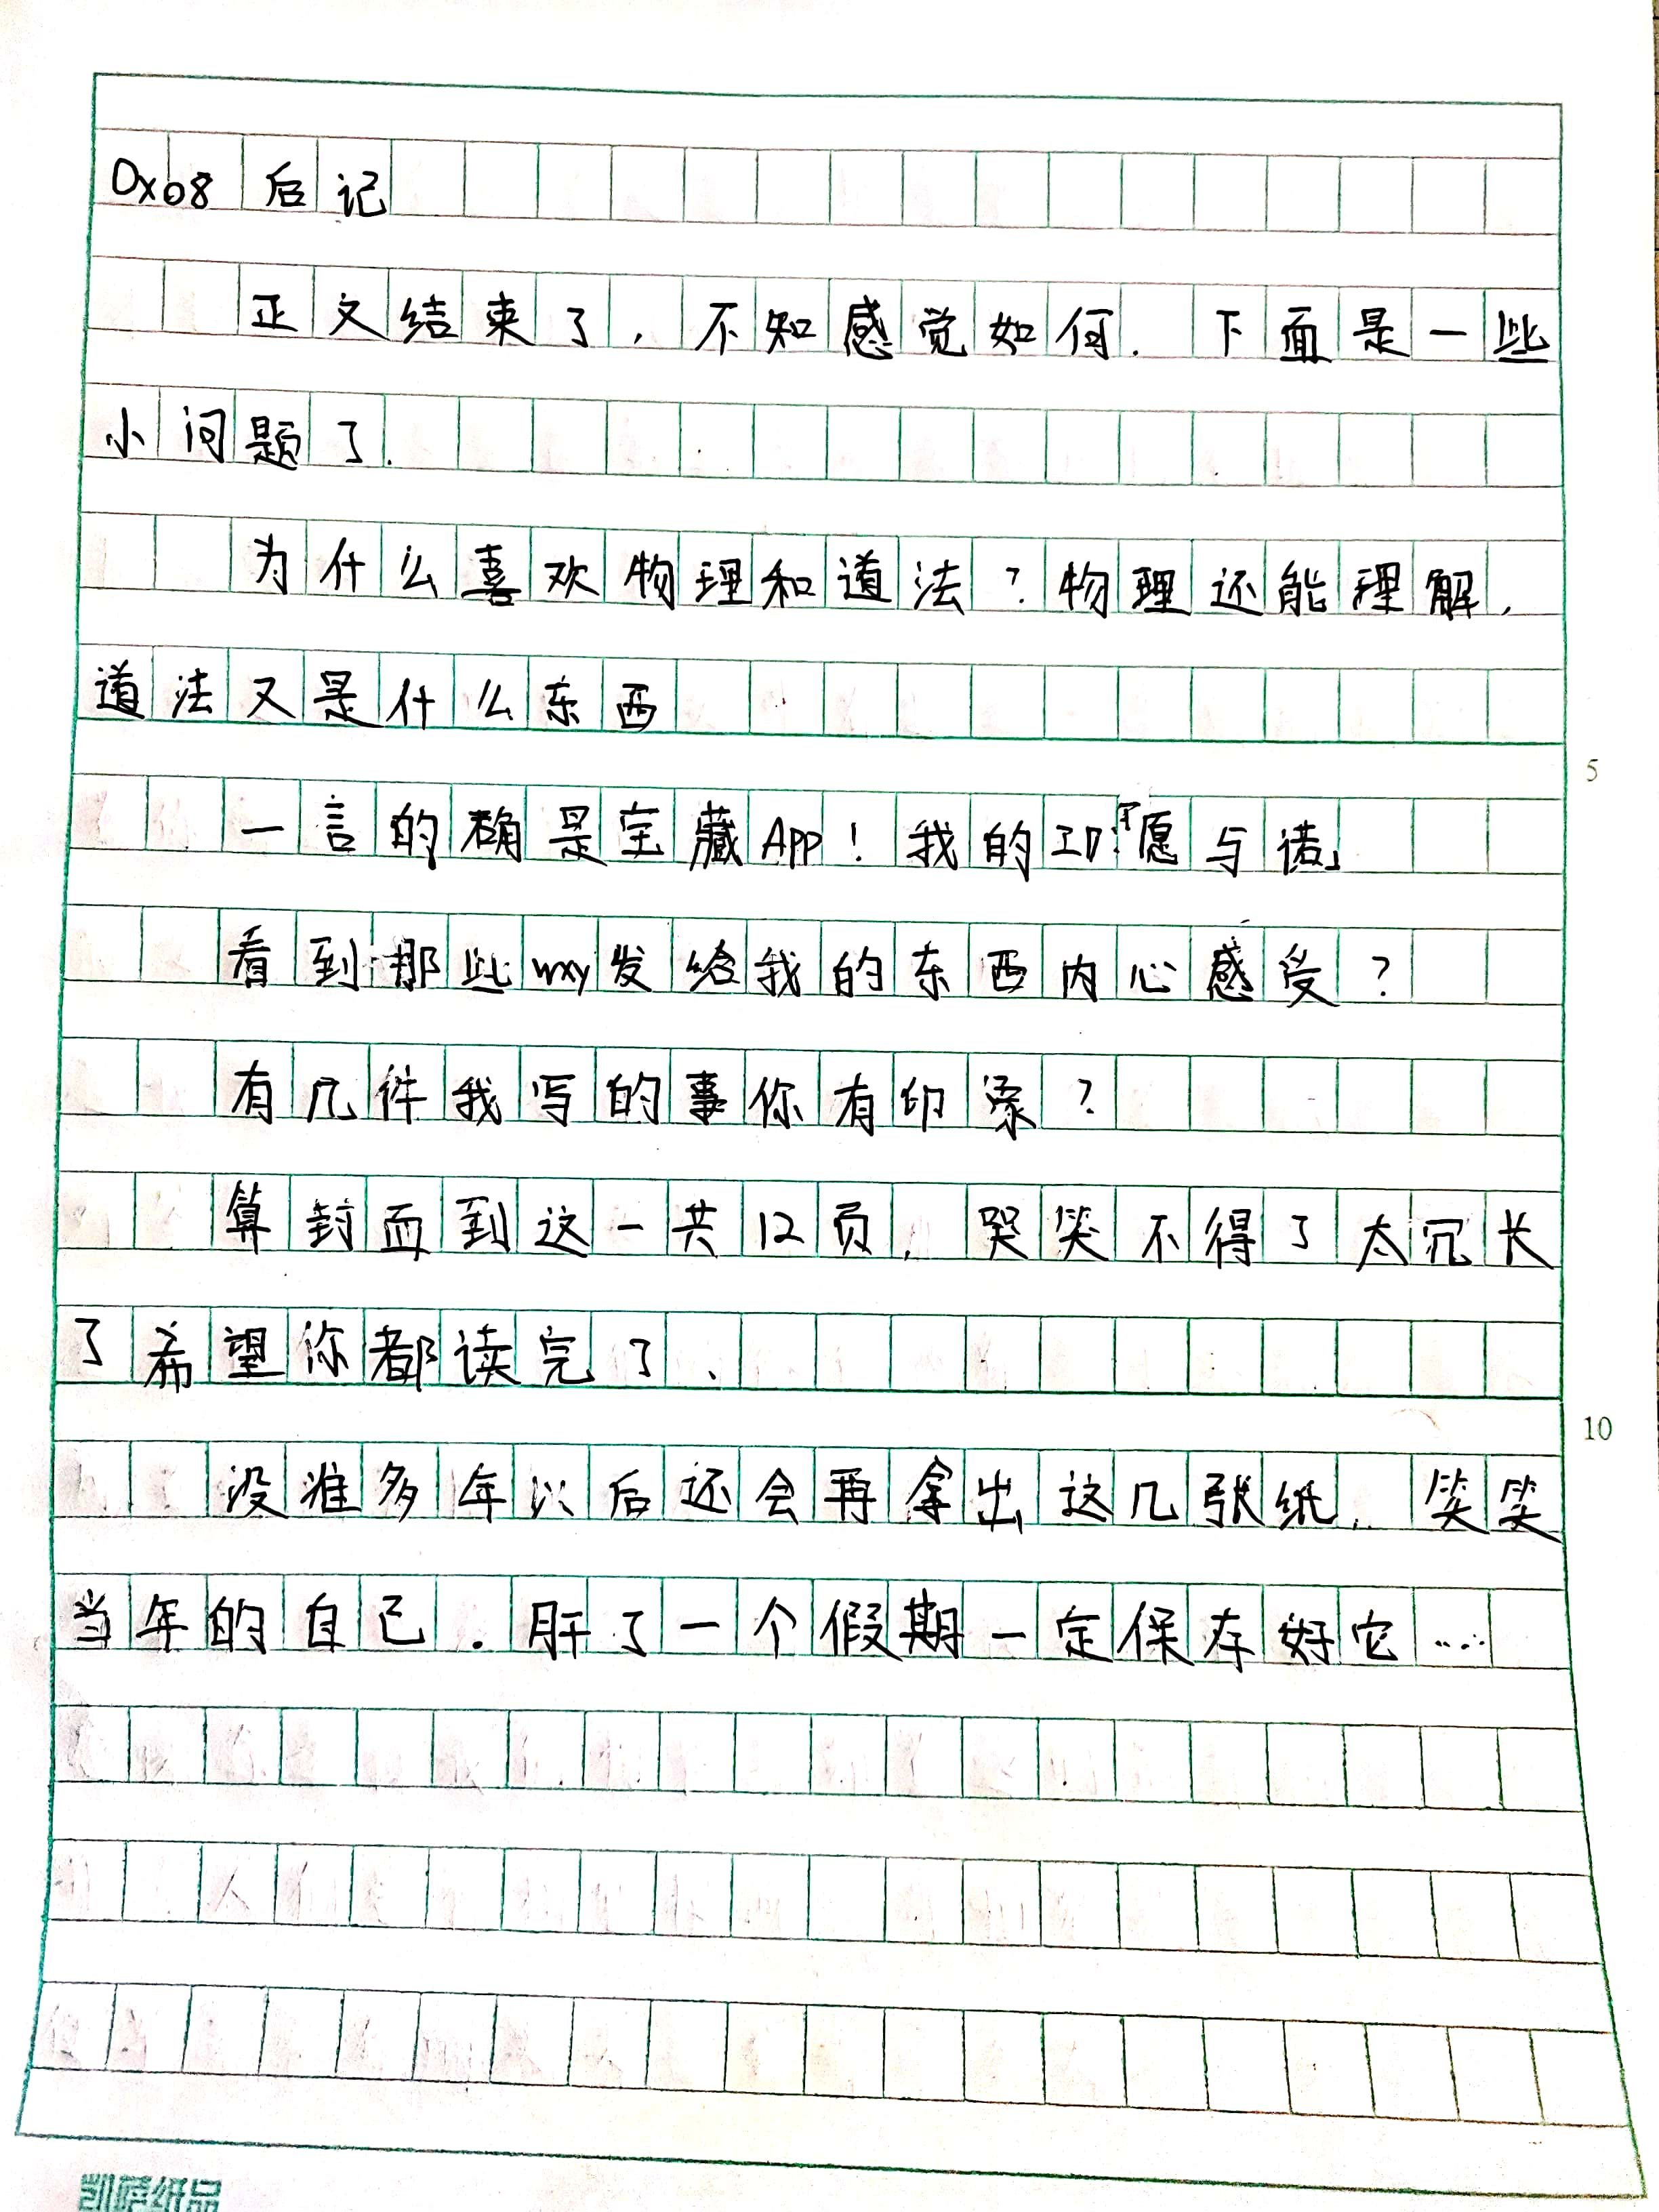 0x08 后记
正文结束了，不知感觉如何．下面是一些
小问题了．
为什么喜欢物理和道法？物理还能理解，
道法又是什么东西
5
一言的确是宝藏APP！我的ID：「愿与诺」
看到那些wxy发给我的东西内心感受？
有几件我写的事你有印象？
算封面到这一共12页，哭笑不得了太冗长
了希望你都读完了．
10
没准多年以后还会再拿出这几张纸，笑笑
当年的自己．肝了一个假期一定保存好它……
凯萌纸品